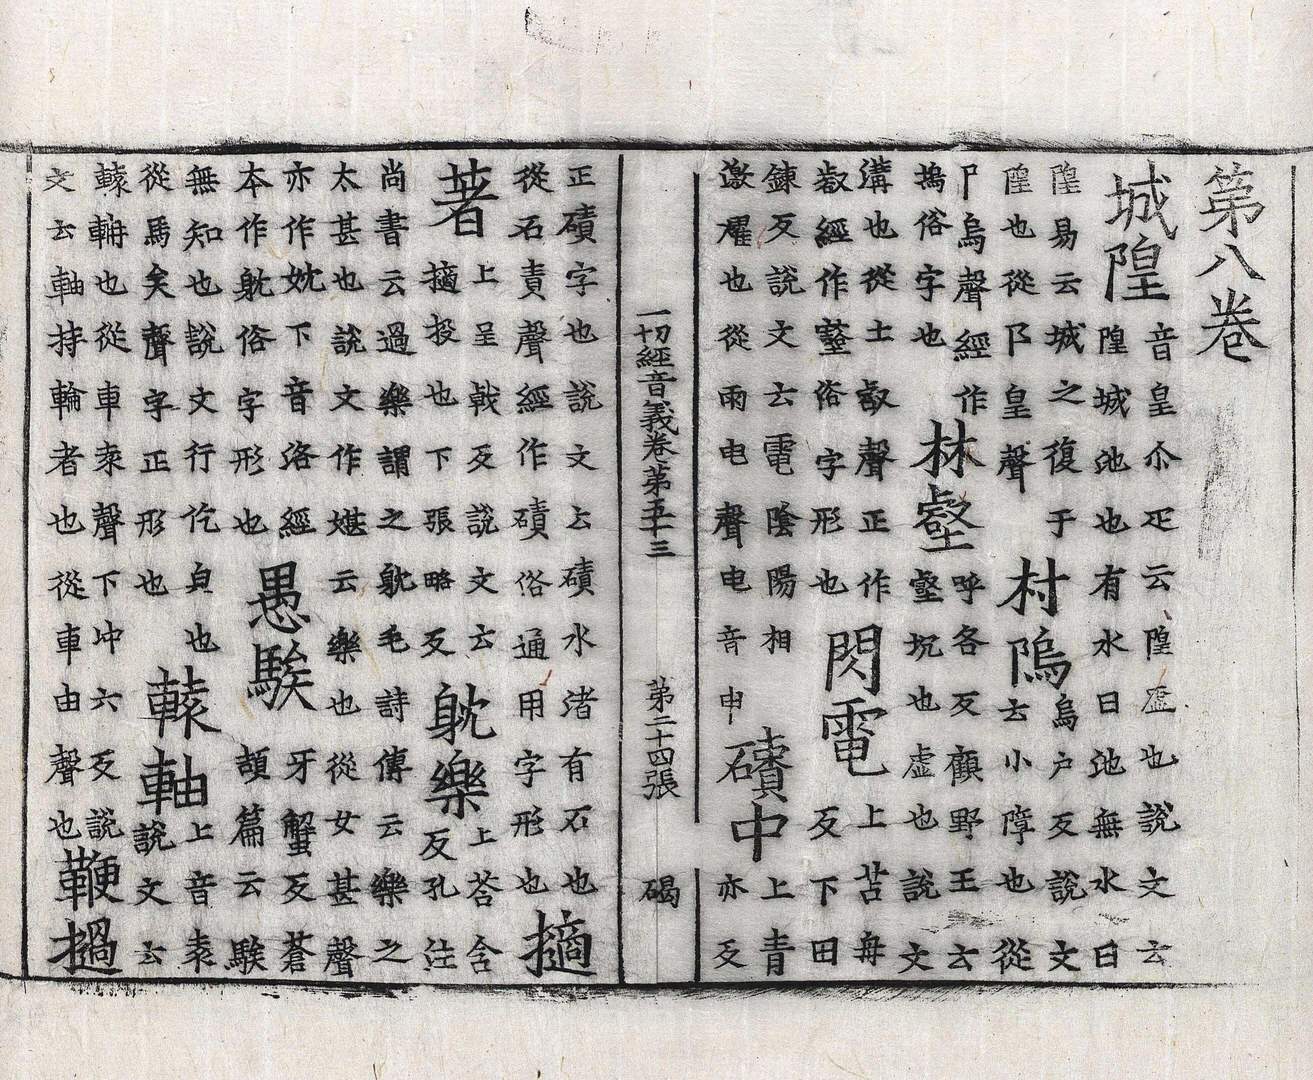 第八卷
城隍
音皇尒疋云隍虛也說文云
隍城池也有水曰池無水曰
隍易云城之復于
隍也從阝皇聲
村隖
烏户反說文
云小障也從
阝烏聲經作
塢俗字也
林壑
呼各反顧野王云
壑坑也虛也說文
溝也從土㕡聲正作
㕡經作壑俗字形也
閃電
上苫冉
反下田
鍊反說文云電陰陽相
激燿也從雨电聲电音申
磧中
上青
亦反
一切經音義卷第五十三 第二十四張 碣
正磧字也說文云磧水渚有石也
從石責聲經作磧俗通用字形也
擿
著
上呈戟反說文云
擿投也下張略反
躭樂
上荅含
反孔注
尚書云過樂謂之躭毛詩傳云樂之
太甚也說文作媅云樂也從女甚聲
亦作妉下音洛經
本作躭俗字形也
愚騃
牙蟹反蒼
頡篇云騃
無知也說文行仡皃也
從馬矣聲字正形也
轅軸
上音袁
說文云
轅輈也從車袁聲下冲六反說
文云軸持輪者也從車由聲也
鞭撾